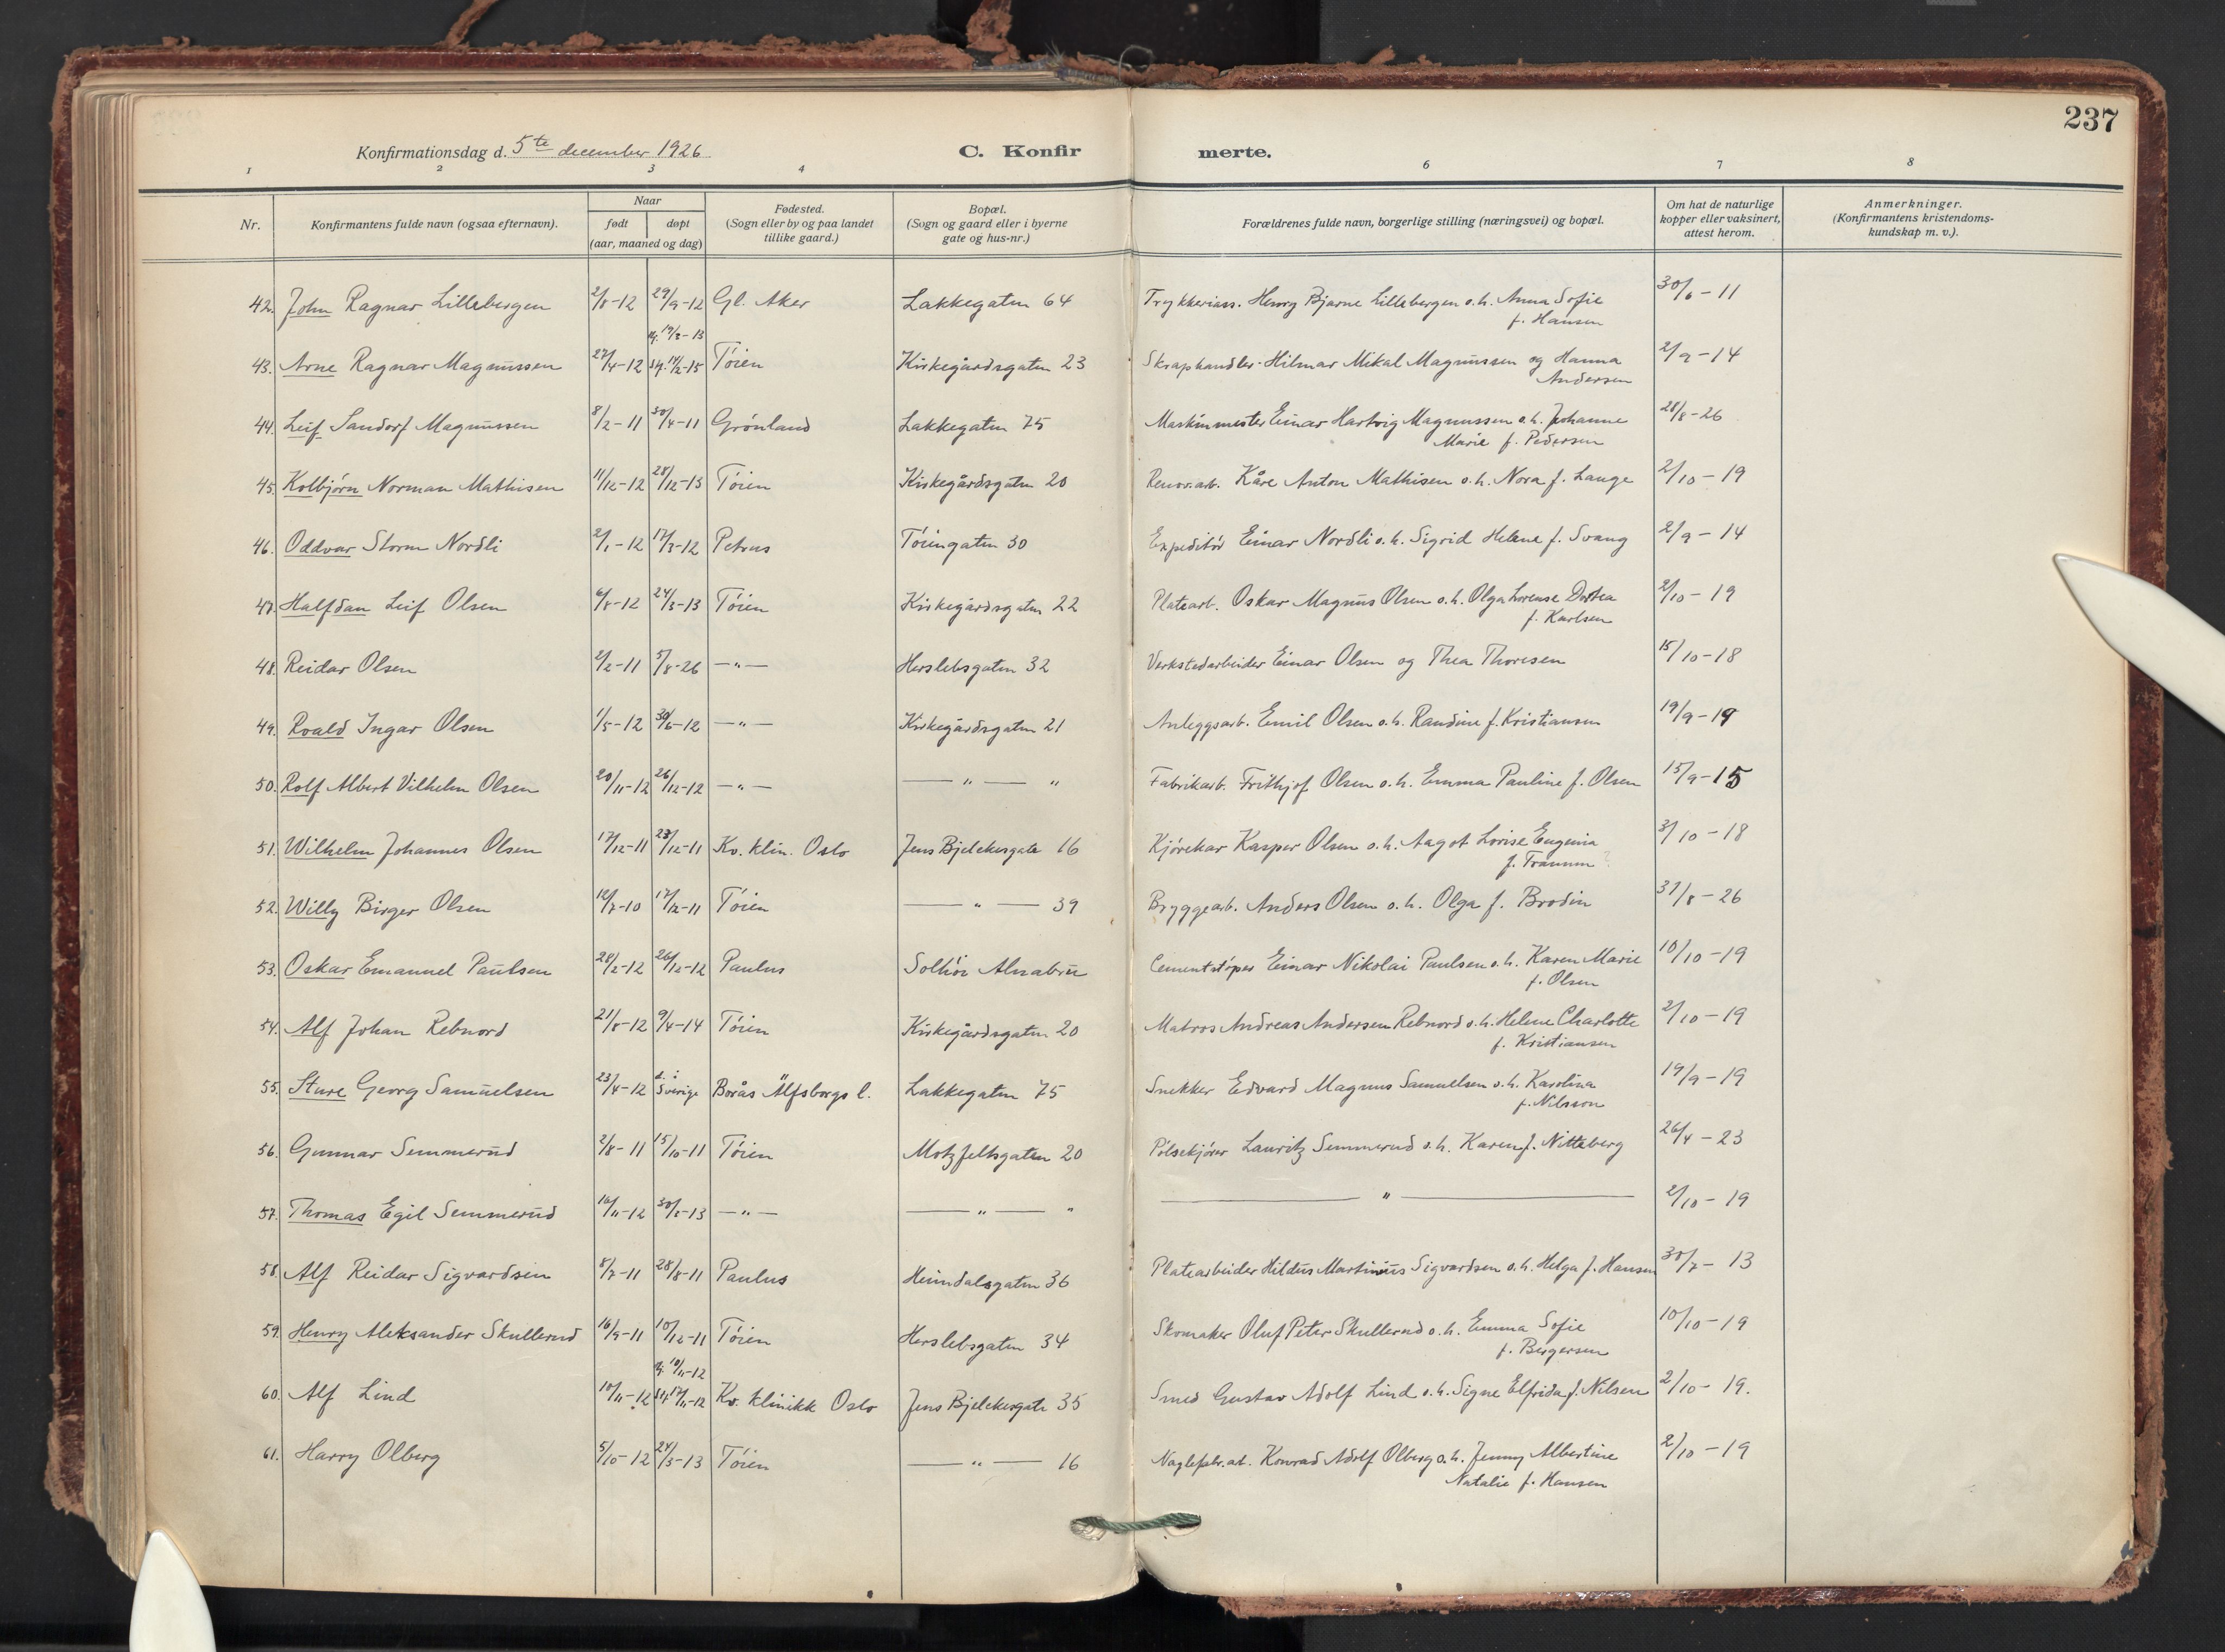 237
Konfirmationsdag d. 5te december 1926
C. Konfirmerte.
1 2 3 4 6 7 8
Nr. Konfirmantens fulde navn (ogsaa efternavn). Naar født døpt (aar, maaned og dag) Fødested. (Sogn eller by og paa landet tillike gaard.) Bopæl. (Sogn og gaard eller i byerne gate og hus-nr.) Forældrenes fulde navn, borgerlige stilling (næringsvei) og bopæl. Om hat de naturlige kopper eller vaksinert, attest herom. Anmerkninger. (Konfirmantens kristendomskundskap m. v.).
42. John Ragnar Lillebergen 2/8-12 29/9-12 Gl. Aker Lakkegaten 64 Trykkeriass. Henry Bjarne Lillebergen o.h. Anna Sofie f. Hansen 30/6-11
43. Arne Ragnar Magnussen 27/4-12 Tøien Kirkegårdsgaten 23 Skraphandler Hilmar Mikal Magnussen og Hanna Andersen 2/9-14
44. Leif Sandorf Magnussen 8/2-11 30/4-11 Grønland Lakkegaten 75 Maskinmester Einar Hartvig Magnussen o.h. Johanne Marie f. Pedersen 28/8-26
45. Kolbjørn Norman Mathisen 11/12-12 28/12-13 Tøien Kirkegårdsgaten 20 Renov.arb. Kåre Anton Mathisen o.h. Nora f. Lange 2/10-19
46. Oddvar Storm Nordli 2/1-12 17/3-12 Petrus Tøiengaten 30 Expeditør Einar Nordli o.h. Sigrid Helene f. Svang 2/9-14
47. Halfdan Leif Olsen 6/8-12 24/3-13 Tøien Kirkegårdsgaten 22 Platearb. Oskar Magnus Olsen o.h. Olga Lorense Dortea f. Karlsen 2/10-19
48. Reidar Olsen 2/2-11 5/8-26 —"— Herslebsgaten 32 Verkstedarbeider Einar Olsen og Thea Thoresen 15/10-18
49. Roald Ingar Olsen 1/5-12 30/6-12 —"— Kirkegårdsgaten 21 Anleggsarb. Emil Olsen o.h. Randine f. Kristiansen 19/9-19
50. Rolf Albert Vilhelm Olsen 20/11-12 26/12-12 —"— —"— " Fabrikarb. Frithjof Olsen o.h. Emma Pauline f. Olsen 15/9-15
51. Wilhelm Johannes Olsen 17/12-11 23/12-11 Kv. klin. Oslo Jens Bjelekesgate 16 Kjørekar Kasper Olsen o.h. Aagot Lovise Eugenia f. Tranum 3/10-18
52. Willy Birger Olsen 12/7-10 17/12-11 Tøien —"— 39 Bryggearb. Anders Olsen o.h. Olga f. Brodin 31/8-26
53. Oskar Emanuel Paulsen 28/2-12 26/12-12 Paulus Solhøi Alnabru Cementstøper Einar Nikolai Paulsen o.h. Karen Marie f. Olsen 10/10-19
54. Alf Johan Rebnord 21/8-12 9/4-14 Tøien Kirkegårdsgaten 20 Matros Andreas Andersen Rebnord o.h. Helene Charlotte f. Kristiansen 2/10-19
55. Sture Georg Samuelsen 23/4-12 d. i Sverige Borås Älfsborgs l. Lakkegaten 75 Snekker Edvard Magnus Samuelsen o.h. Karolina f. Nilsson 19/9-19
56. Gunnar Semmerud 2/8-11 15/10-11 Tøien Motzfeltsgaten 20 Pølsekjører Lauritz Semmerud o.h. Karen f. Nitteberg 26/4-23
57. Thomas Egil Semmerud 16/11-12 30/3-13 —"— —"— " —"— 2/10-19
58. Alf Reidar Sigvardsen 8/7-11 28/8-11 Paulus Heimdalsgaten 36 Platearbeider Hildus Martinius Sigvardsen o.h. Helga f. Hansen 30/7-13
59. Henry Aleksander Skullerud 16/9-11 10/12-11 Tøien Herslebsgaten 34 Skomaker Oluf Peter Skullerud o.h. Emma Sofie f. Birgersen 10/10-19
60. Alf Lind 10/11-12 Kv. klinikk Oslo Jens Bjelekesgate 35 Smed Gustav Adolf Lind o.h. Signe Elfrida f. Nilsen 2/10-19.
61. Harry Olberg 5/10-12 24/3-13 Tøien —"— 16 Naglefabr.arb. Konrad Adolf Olberg o.h. Jenny Albertine Natalie f. Hansen 2/10-19